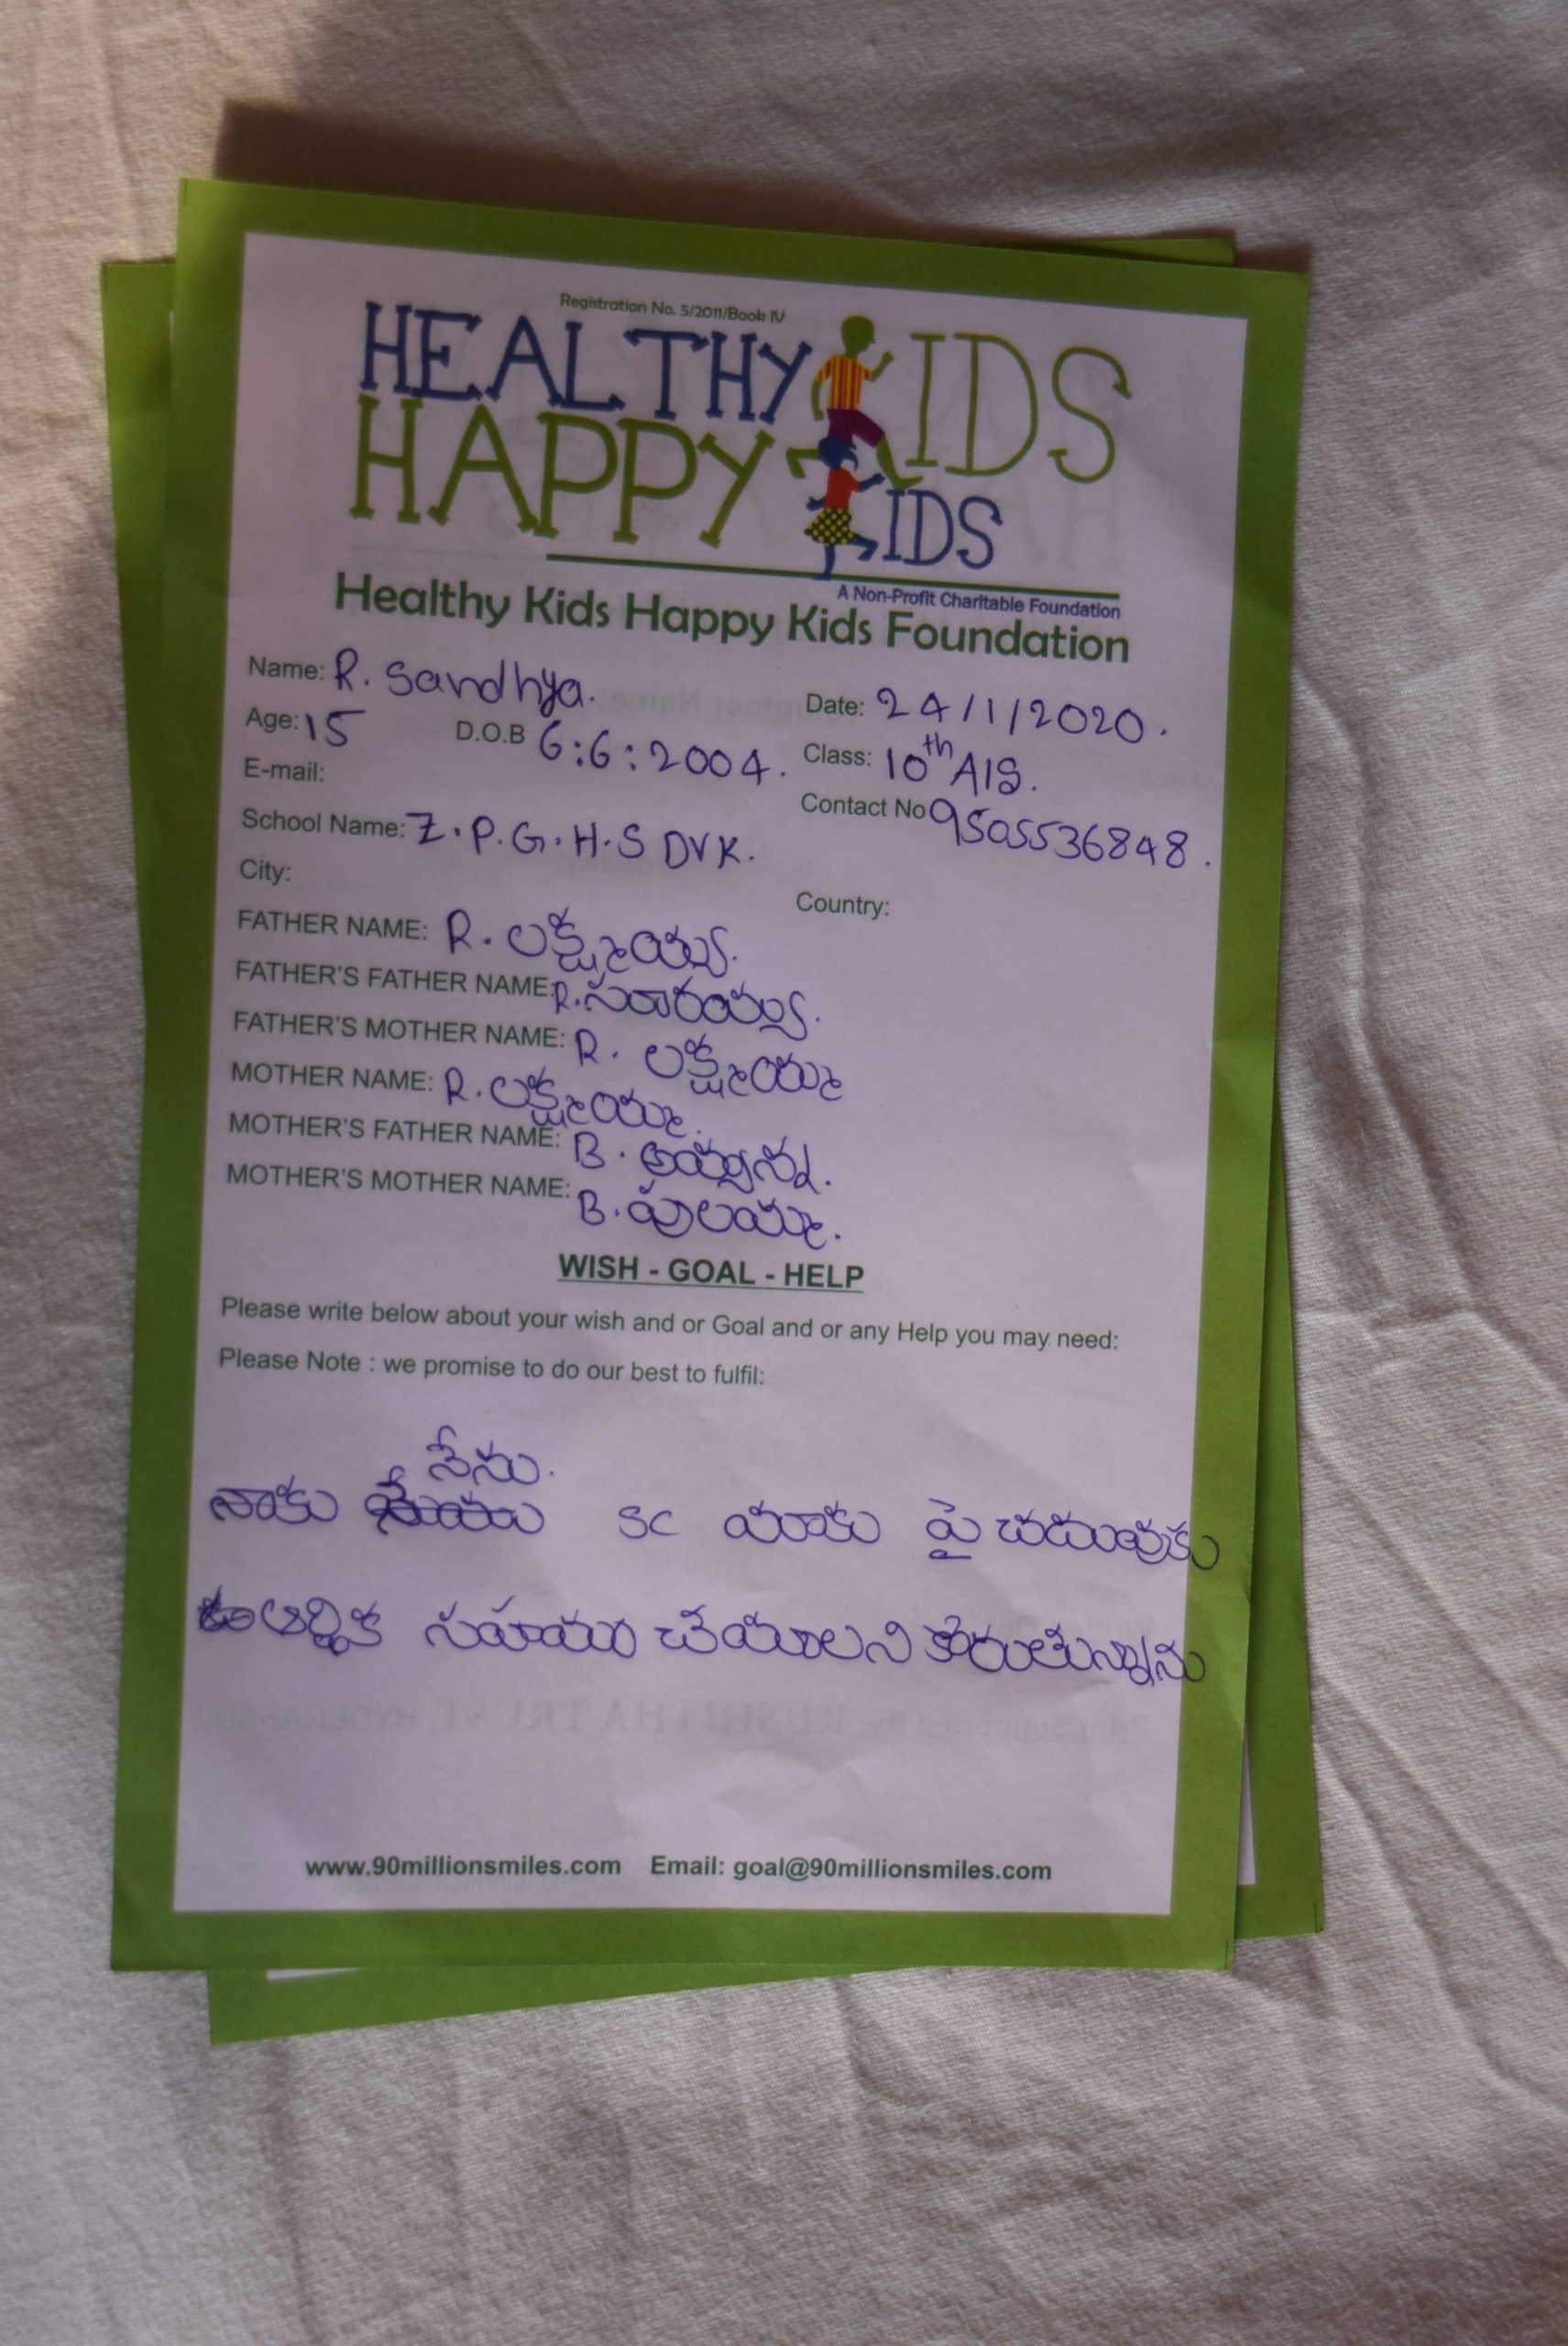 Registration No. 5/2011/Book IV
HEALTHY KIDS
HAPPY KIDS
A Non-Profit Charitable Foundation
Healthy Kids Happy Kids Foundation
Name: R. Sandhya. Date: 24/1/2020.
Age: 15 D.O.B 6:6:2004. Class: 10th A1S.
E-mail: Contact No 9505536848.
School Name: Z.P.G.H.S DVK.
City: Country:
FATHER NAME: R. లక్ష్మయ్య.
FATHER'S FATHER NAME: R.
FATHER'S MOTHER NAME: R. లక్ష్మయమ్మ
MOTHER NAME: R. లక్ష్మయమ్మ.
MOTHER'S FATHER NAME: B. అయ్యన్న.
MOTHER'S MOTHER NAME: B. పులమ్మ.
WISH - GOAL - HELP
Please write below about your wish and or Goal and or any Help you may need:
Please Note : we promise to do our best to fulfil:
నేను.
నాకు SC మాకు పై చదువుకు
ఆర్థిక సహాయం చేయాలని కోరుతున్నాను
www.90millionsmiles.com Email: goal@90millionsmiles.com